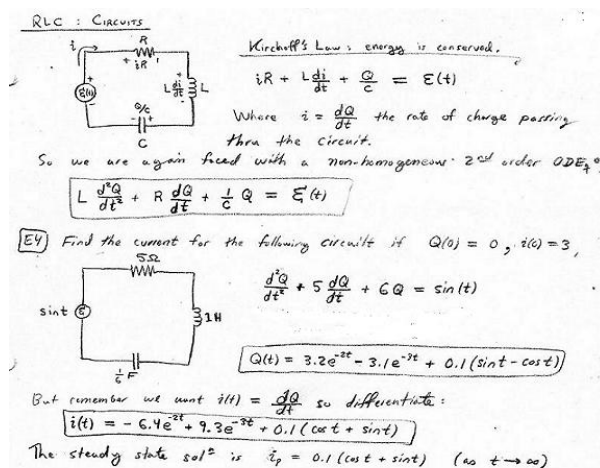 RLC : CIRCUITS
i
R
+ iR -
Kirchoff's Law : energy is conserved.
ε(t)
L di/dt
L
iR + L di/dt + Q/c = ε(t)
Q/c
- +
C
Where i = dQ/dt the rate of charge passing
thru the circuit.
So we are again faced with a non-homogeneous 2nd order ODE
L d²Q/dt² + R dQ/dt + 1/c Q = ε(t)
E4 Find the current for the following circuit if Q(0) = 0, i(0) = 3,
5Ω
d²Q/dt² + 5 dQ/dt + 6Q = sin(t)
sint
1H
1/6 F
Q(t) = 3.2e^-2t - 3.1e^-3t + 0.1(sint - cost)
But remember we want i(t) = dQ/dt so differentiate:
i(t) = -6.4e^-2t + 9.3e^-3t + 0.1(cost + sint)
The steady state solⁿ is ip = 0.1(cost + sint) (as t → ∞)